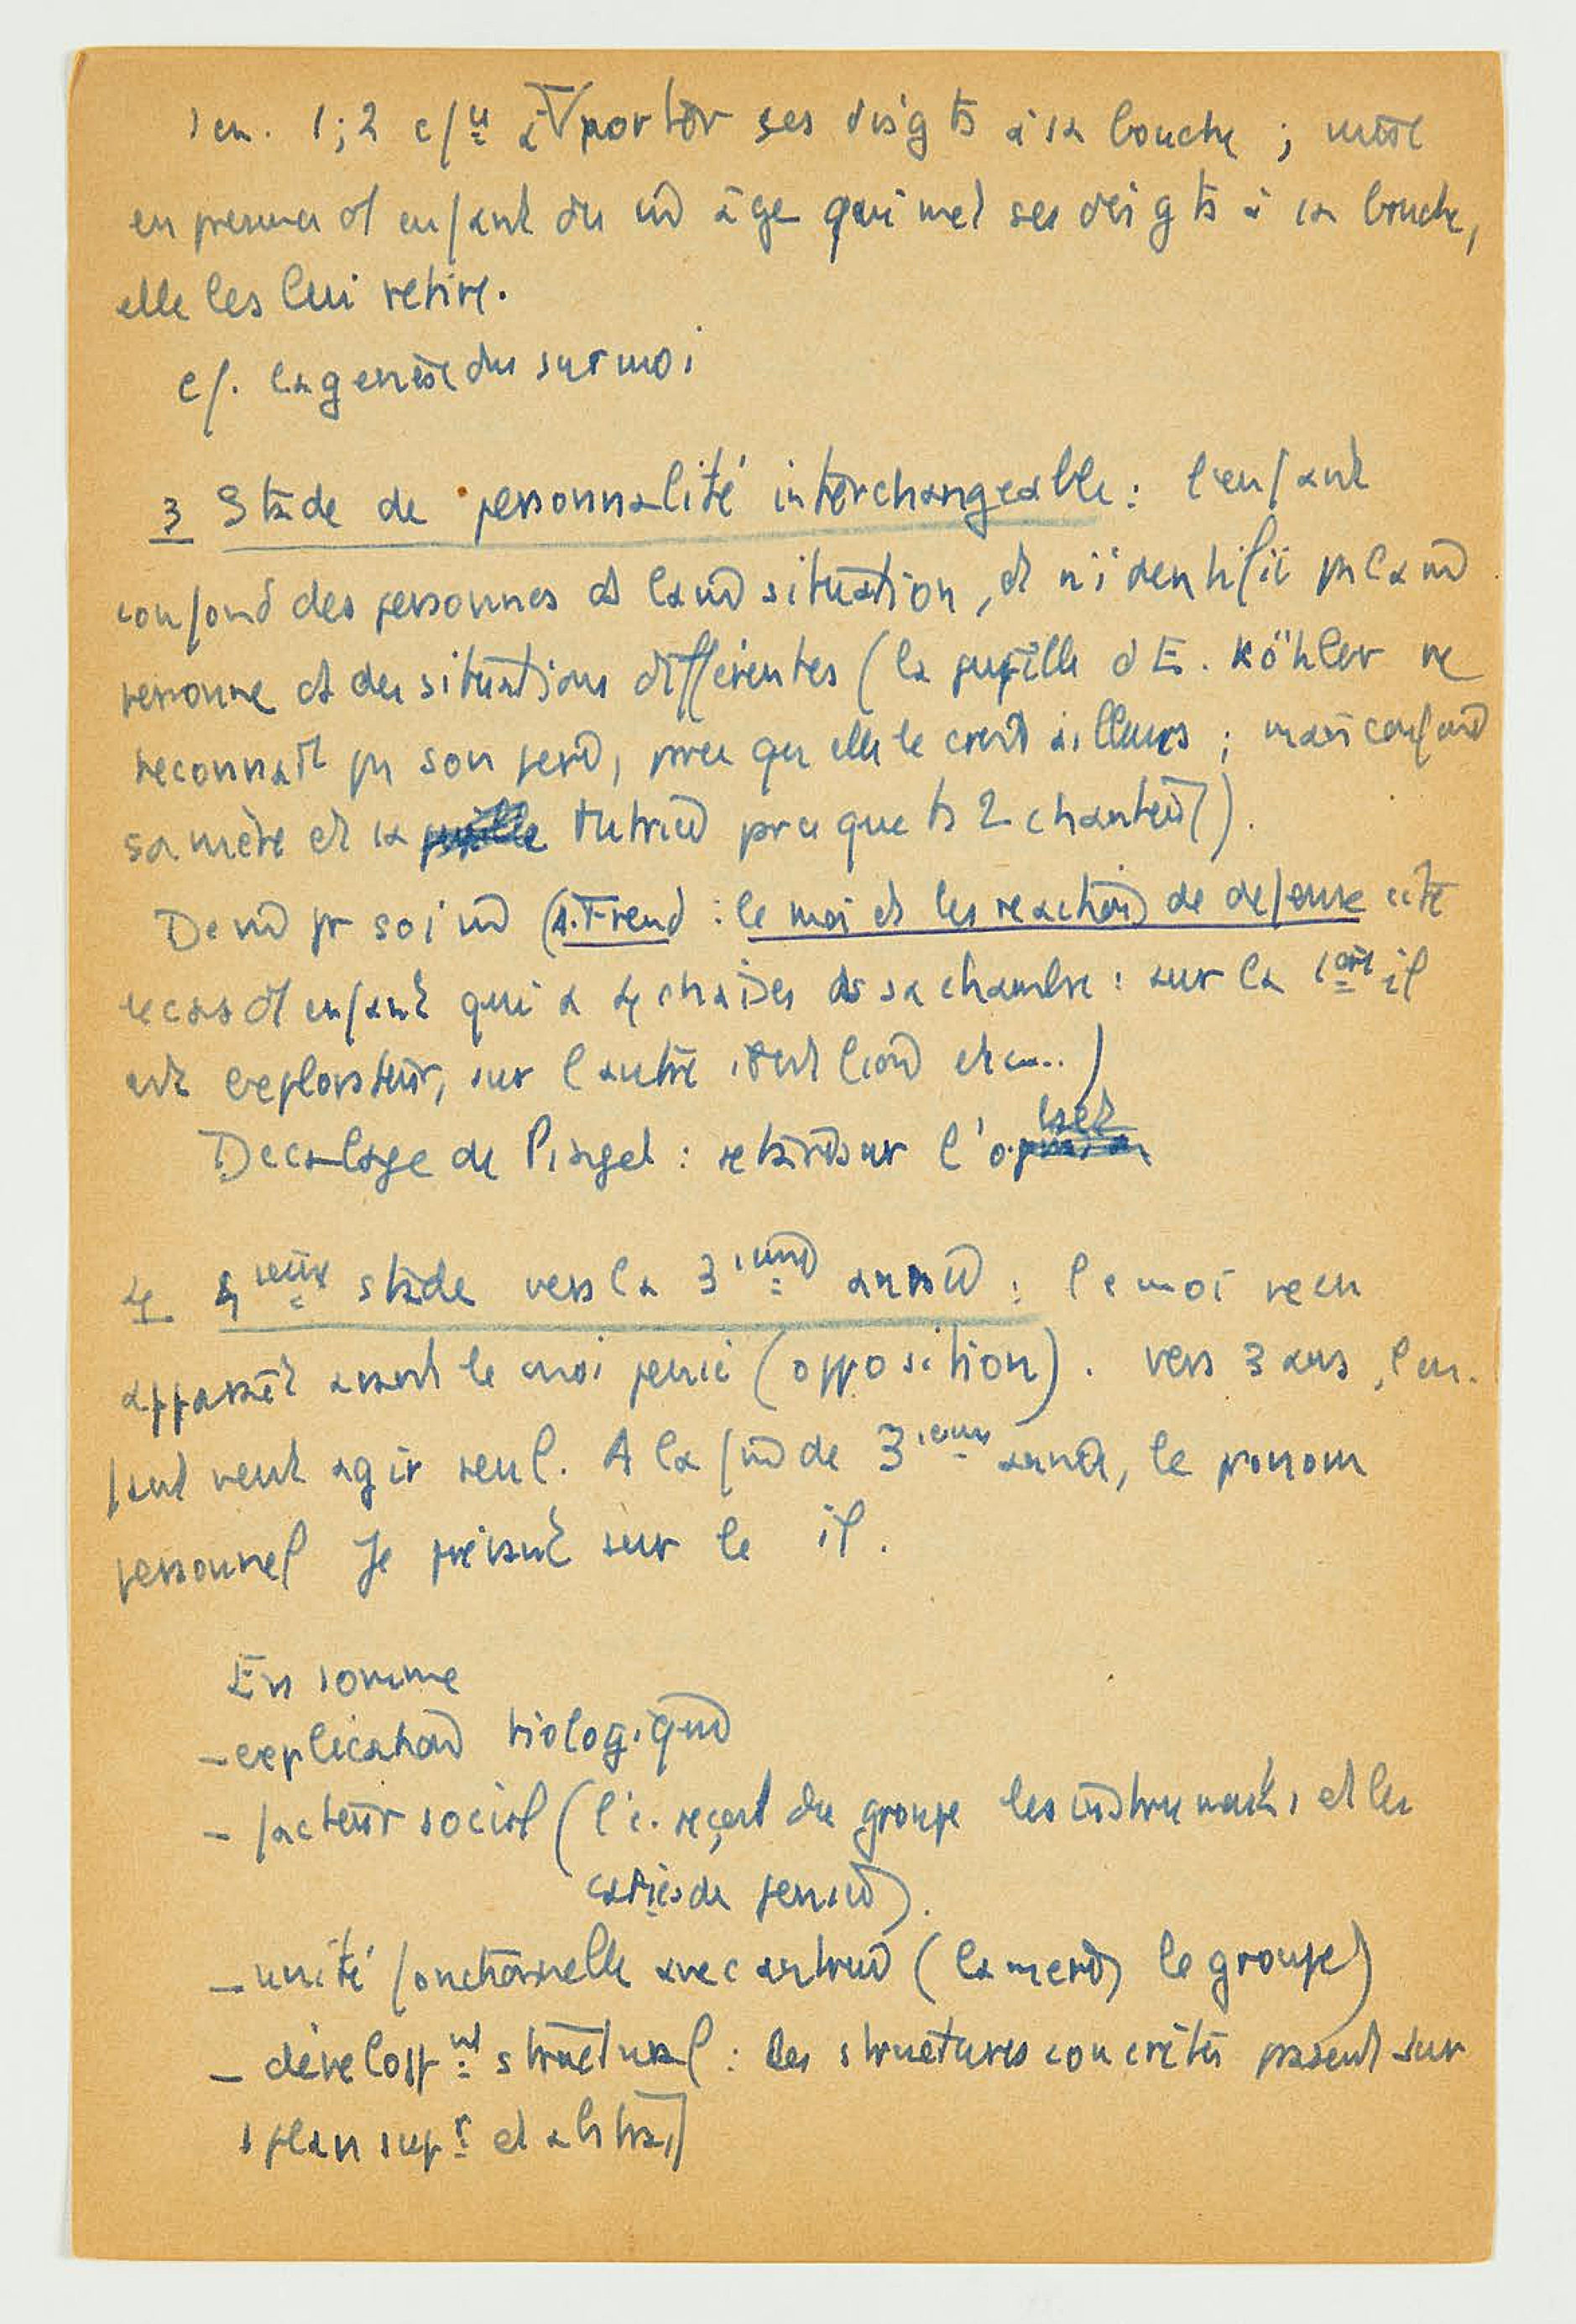 en presence d'1 enfant du m̂ âge qui met ses doigts à sa bouche,
elle les lui retire.
cf. la genèse du surmoi
3 Stade de personnalité interchangeable : l'enfant
confond des personnes ds la m̂ situation, et n'identifie pas la m̂
personne ds des situations différentes (la fille d'E. Köhler ne
reconnaît pas son père, parce qu'elle le croit ailleurs ; mais confond
sa mère et sa nutrice parce que ts 2 chantent).
De m̂ pr soi m̂ (A. Freud : le moi et les reactions de defense cite
le cas d'1 enfant qui a 4 chaises ds sa chambre : sur la 1ère il
est explorateur, sur l'autre il est lion etc...)
Decalage de Piaget : retard sur l'
4 4ieme stade vers la 3ieme année : le moi vecu
apparaît avant le moi pensé (opposition). Vers 3 ans, l'en-
fant veut agir seul. A la fin de 3ieme année, le pronom
personnel Je prévaut sur le il.
En somme
- explication biologique
- facteur social (l'i. reçoit du groupe les instruments et les
de pensée).
- unité fonctionnelle avec autrui (la mère, le groupe)
- developpt structural : les structures concrètes passent sur
1 plan supr et abstrait